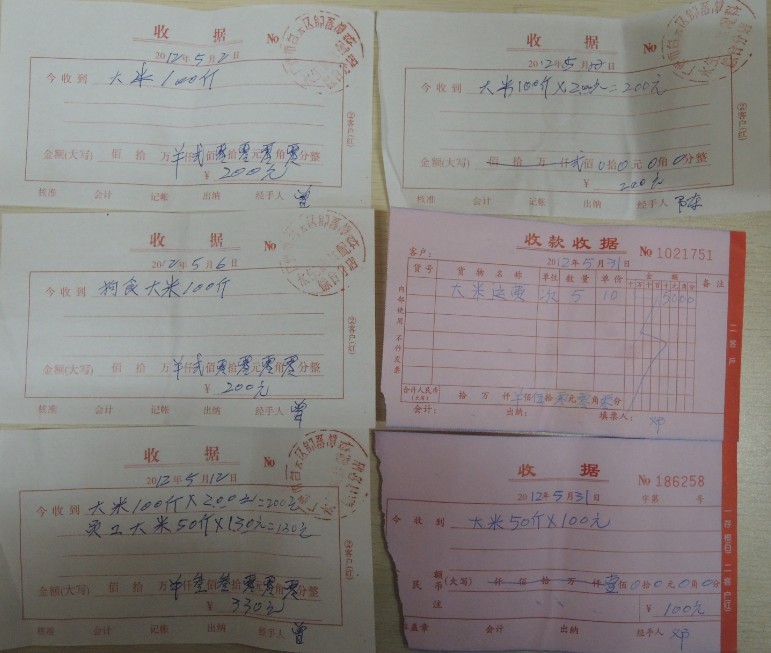 收 据
No
2012年5月2日
今收到 大米100斤
金额(大写) 佰 拾 万 仟贰佰零拾零元零角零分整
¥ 200元
核准 会计 记帐 出纳 经手人 曾
②客户(红)
收 据
No
2012年5月6日
今收到 狗食大米100斤
金额(大写) 佰 拾 万 仟贰佰零拾零元零角零分整
¥ 200元
核准 会计 记帐 出纳 经手人 曾
②客户(红)
收 据
No
2012年5月12日
今收到 大米100斤×200元=200元
员工大米50斤×130元=130元
金额(大写) 佰 拾 万 仟叁佰叁拾零元零角零分整
¥ 330元
核准 会计 记帐 出纳 经手人 曾
②客户(红)
收 据
No
今收到 大米100斤×200元=200元
金额(大写) 佰 拾 万 仟贰佰0拾0元0角0分整
¥ 200元
核准 会计 记帐 出纳 经手人
②客户(红)
收款收据 No 1021751
客户: 2012年5月31日
货号 货物名称 单位 数量 单价 金额 备注
十万千百十元角分
大米运费 次 5 10 5000
内部使用 不作发票
合计人民币(大写) 拾 万 仟 佰伍拾零元零角零分
会计: 出纳: 填票人: 邓
二 客户
收 据 No 186258
2012年5月31日 字第 号
今 收到 大米50斤×100元
民币(大写) 仟 佰 拾 万 仟 壹佰0拾0元0角0分
¥ 100元
盖章 会计 出纳 经手人 邓